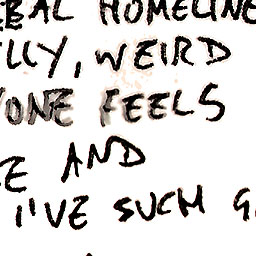 HOMELINE
LLY, WEIRD
YONE FEELS
AND
I'VE SUCH G